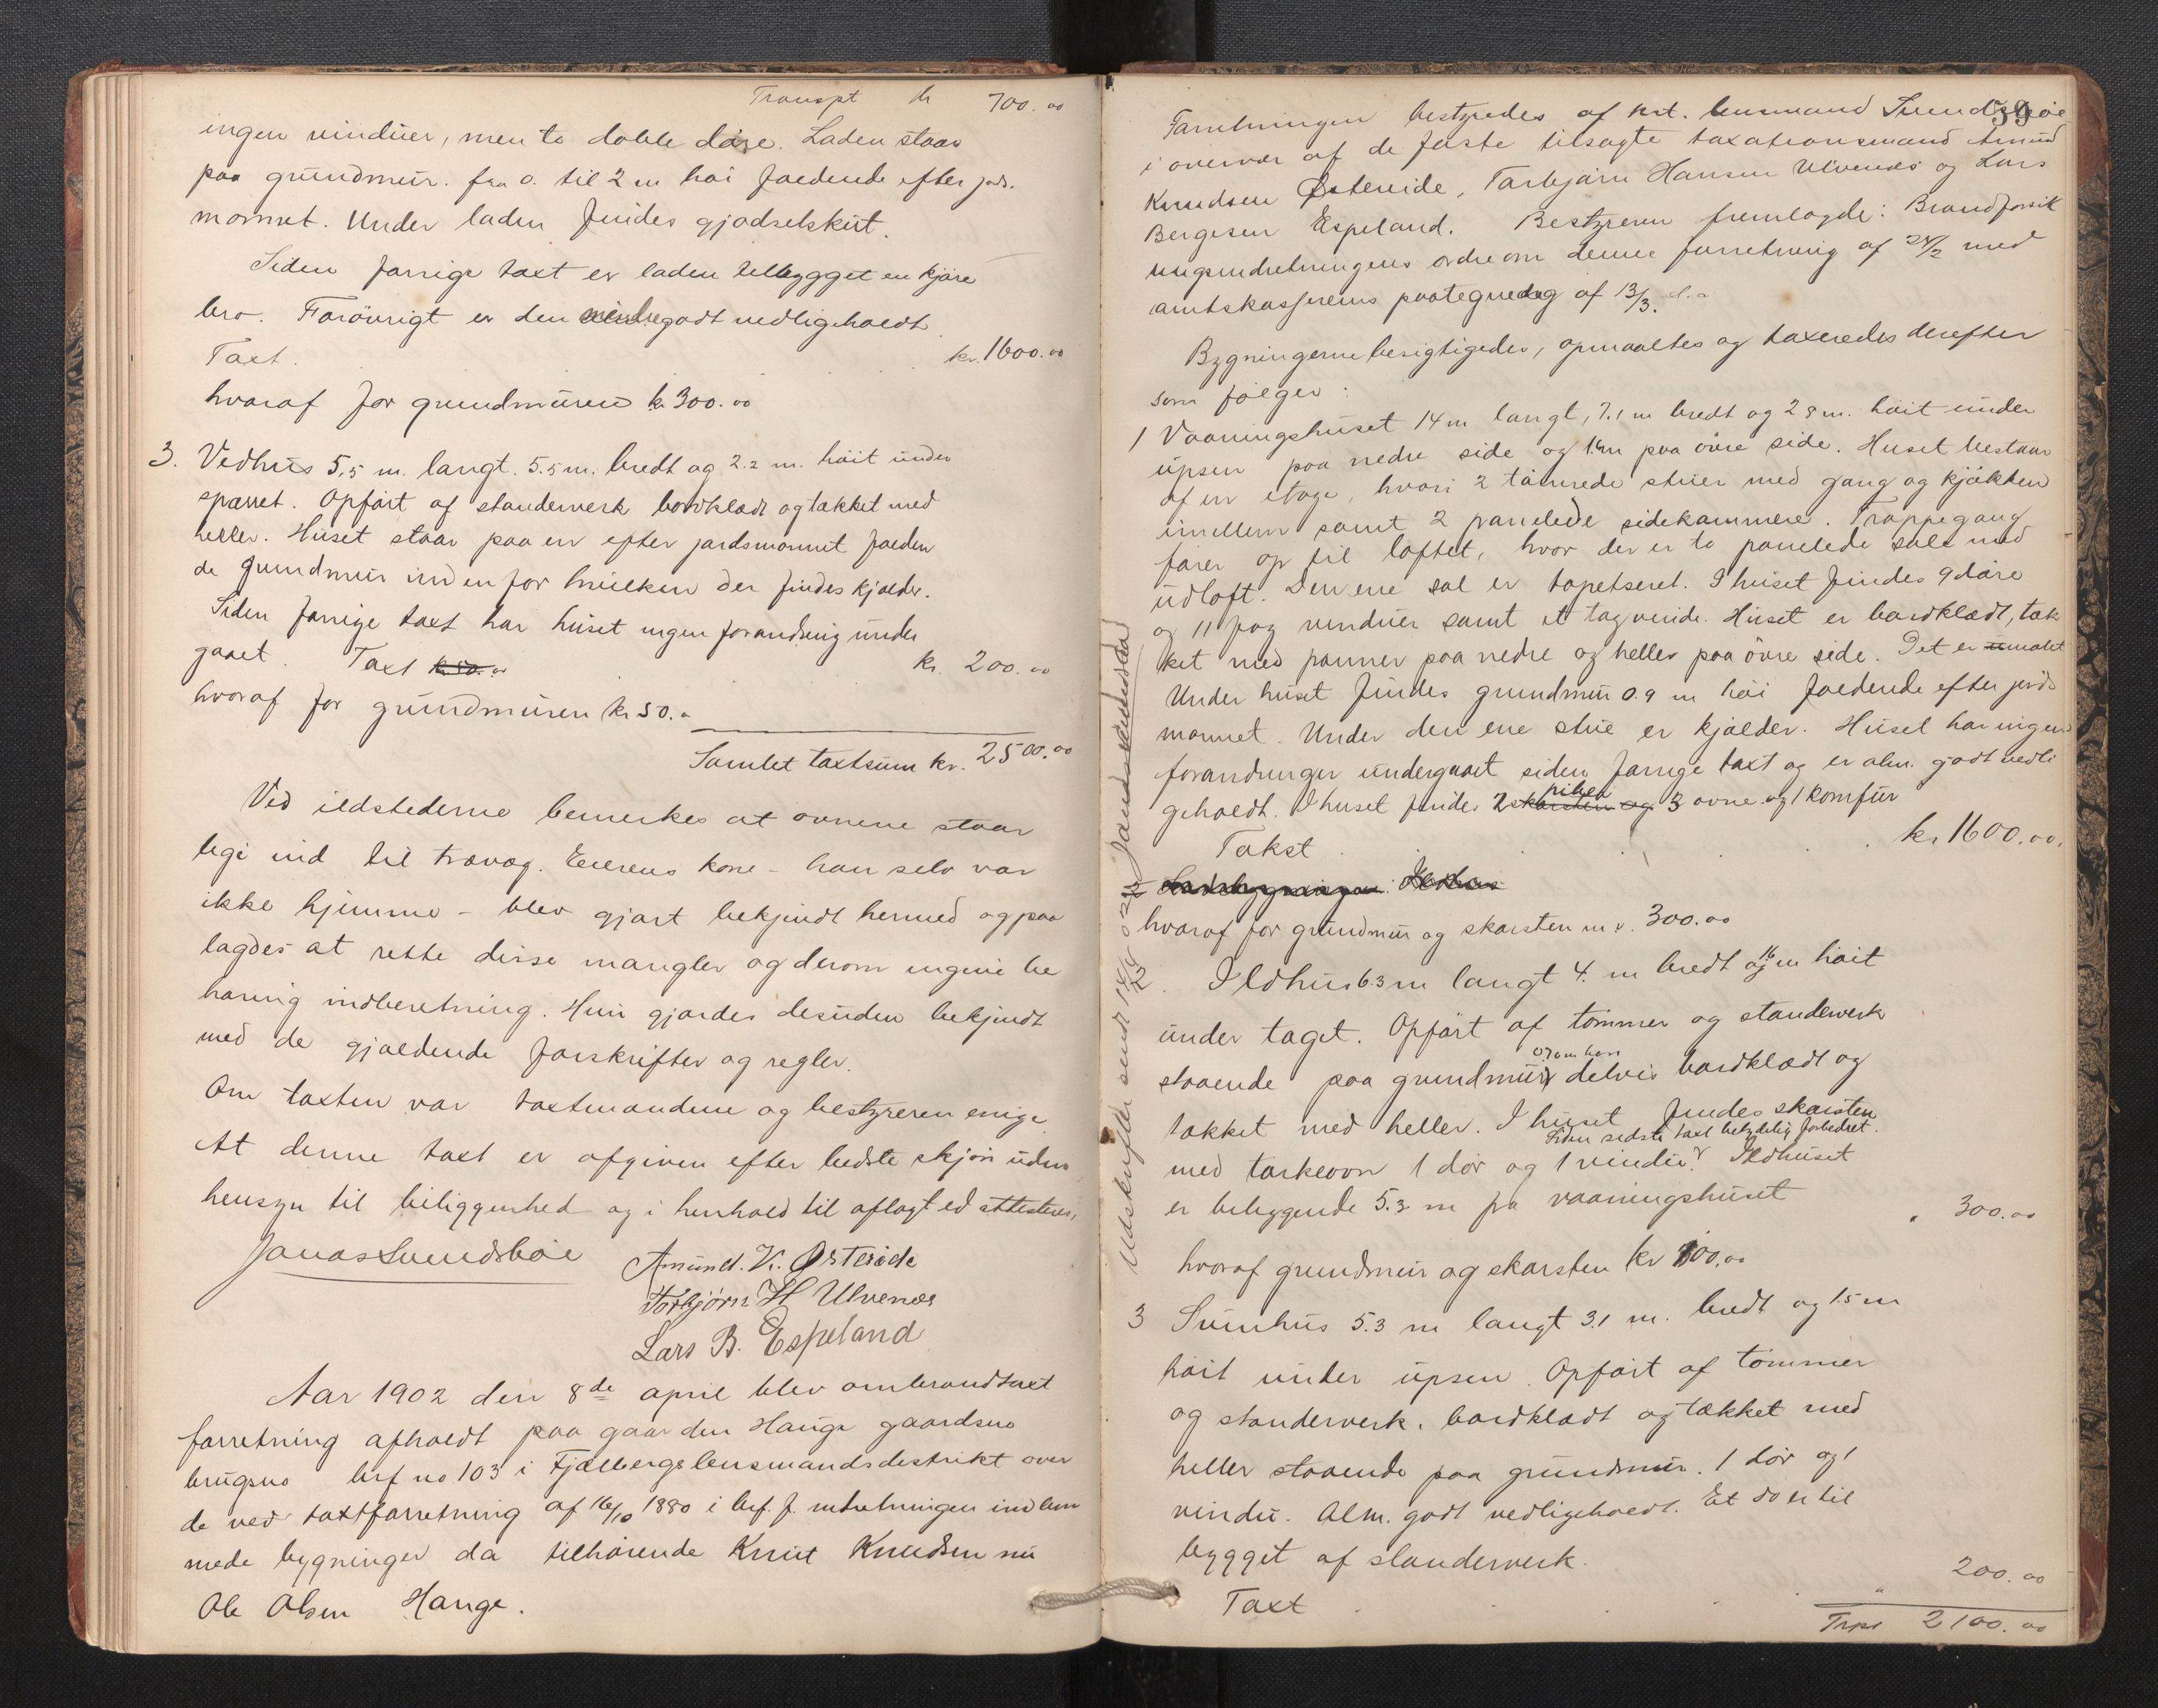 Transpt kr 700.00
ingen vinduer, men to doble døre. Laden staar
paa grundmur. fra 0. til 2 m høi faldende efter jords-
monnet. Under laden findes gjødselskut.
Siden forrige taxt er laden tilbygget en kjøre
bro. Forøvrigt er den godt vedligeholdt
Taxt. kr. 1600.00
hvoraf for grundmuren kr 300.00
3. Vedhus 5,5 m. langt. 5.5 m. bredt og 2.2 m. høit under
sparret. Opført af standerverk bordklædt og tækket med
heller. Huset staar paa en efter jordsmonnet falden
de grundmur indenfor hvilken der findes kjælder.
Siden forrige taxt har huset ingen forandring under
gaaet. Taxt kr 50.00 kr. 200.00
hvoraf for grundmuren kr 50.
Samlet taxtsum kr. 2500.00
Ved ildstederne bemerkes at ovnene staar
lige ind til trævæg. Eierens kone – han selv var
ikke hjemme – blev gjort bekjendt hermed og paa
lagdes at rette disse mangler og derom ingive be
hørig indberetning. Hun gjordes desuden bekjendt
med de gjældende forskrifter og regler.
Om taxten var taxtmændene og bestyreren enige
At denne taxt er afgiven efter bedste skjøn uden
hensyn til beliggenhed og i henhold til aflagt ed attesteres,
Jonas Svendsbøe Amund. K. Østeside
Torbjørn H Ulvenes
Lars B. Espeland
Aar 1902 den 8de april blev ombrandtaxt
forretning afholdt paa gaarden Hauge gaardsno
brugsno brf no 103 i Fjelbergs lensmandsdistrikt over
de ved taxtforretning af 16/10 1880 i brf. f. indretningen indlem
mede bygninger da tilhørende Knut Knudsen nu
Ole Olsen Hauge.
59
Forretningen bestyredes af kst. lensmand Svendsbøe
i overvær af de faste tilsagte taxationsmænd Amund
Knudsen Østereide, Torbjørn Hansen Ulvenes og Lars
Bergesen Espeland. Bestyreren fremlagde: Brandforsik
ringsindretningens ordre om denne forretning af 24/2 med
amtskasserens paategnedeg af 13/3. d.a
Bygningerne besigtigedes, opmaaltes og taxeredes derefter
som følger:
1 Vaaningshuset 14 m langt, 7.1 m bredt og 2 8 m. høit under
upsen paa nedre side og 1.4 m paa øvre side. Huset bestaar
af en etage, hvori 2 tømrede stuer med gang og kjøkken
imellem samt 2 panelede sidekammere. Trappegang
fører op til loftet, hvor der er to panelede sale med
udloft. Den ene sal er tapetseret. I huset findes 9 døre
og 11 fag vinduer samt et tagvindu. Huset er bordklædt, tæk
ket med panner paa nedre og heller paa øvre side. Det er umalet
Under huset findes grundmur 0.9 m høi faldende efter jords
monnet. Under den ene stue er kjælder. Huset har ingen
forandringer undergaaet siden forrige taxt og er alm. godt vedli
geholdt. I huset findes 2 skorsten og piber 3 ovne og 1 komfur
Takst kr 1600.00.
hvoraf for grundmur og skorsten m.v. 300.00
2. Ildhus 6.3 m langt 4. m bredt og 16 m høit
under taget. Opført af tømmer og standerverk
staaende paa grundmur delvis bordklædt og
tækket med heller. I huset findes skorsten
Siden sidste taxt betydelig forbedret.
med tørkeovn 1 dør og 1 vindu. Ildhuset
er beliggende 5.3 m fra vaaningshuset
" 300.00
hvoraf grundmur og skorsten kr 100.00
3 Smuhus 5.3 m langt 3.1 m. bredt og 1.5 m
høit under upsen. Opført af tømmer
og standerverk, bordklædt og tækket med
heller staaende paa grundmur. 1 dør og 1
vindu. Alm. godt vedligeholdt. Et do er til
bygget af standerverk.
Taxt " 200.00
Trpt 2100.00